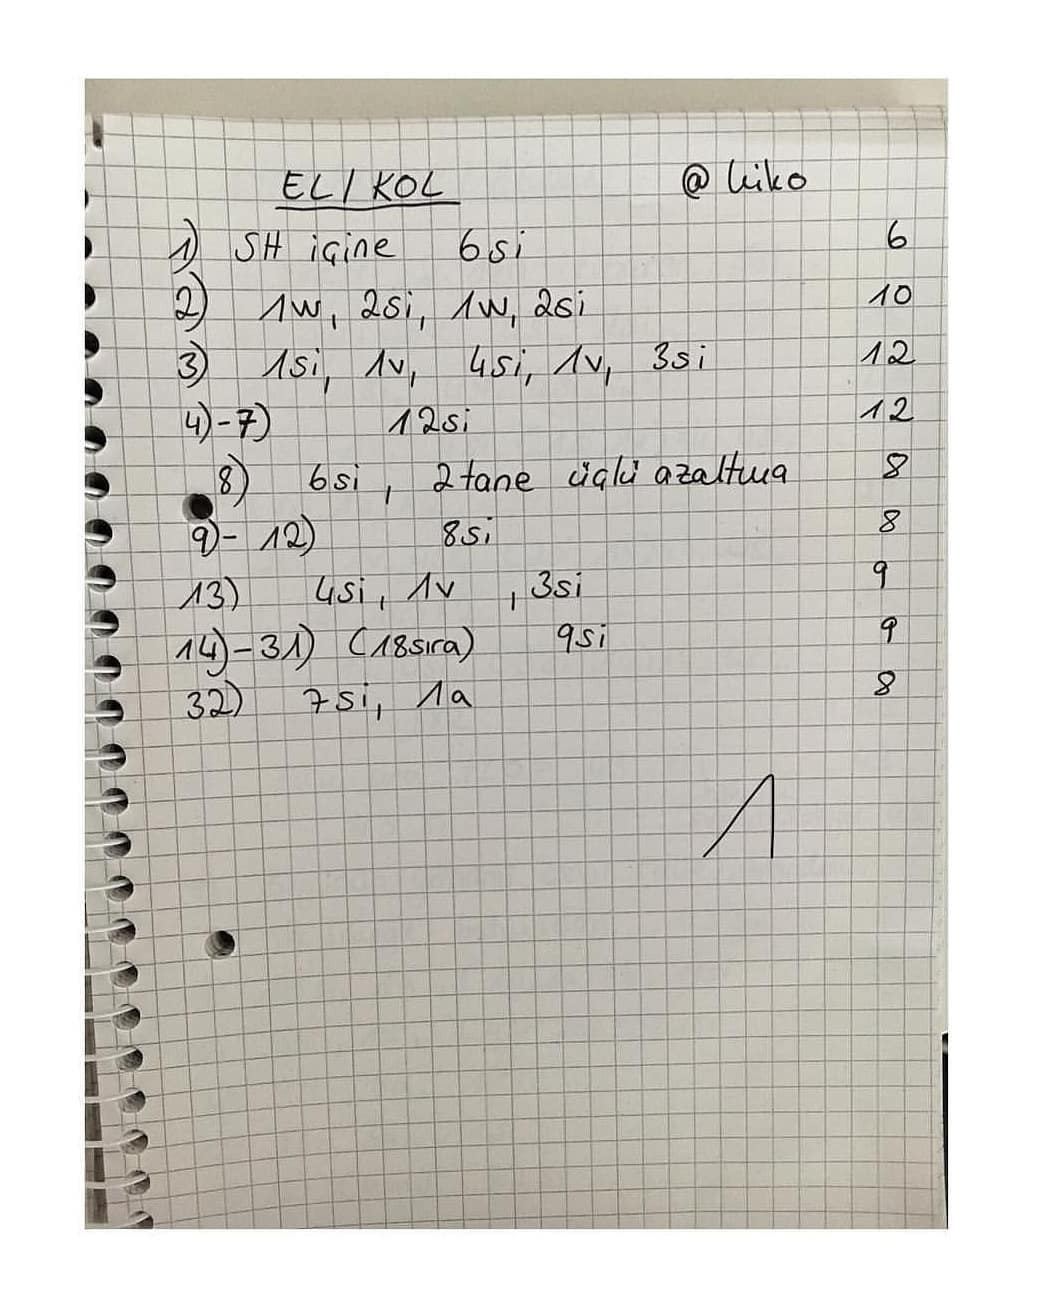 EL / KOL @ kiko
1) SH içine 6si 6
2) 1w, 2si, 1w, 2si 10
3) 1si, 1v, 4si, 1v, 3si 12
4)-7) 12si 12
8) 6si, 2 tane üçlü azaltma 8
9)- 12) 8si 8
13) 4si, 1v , 3si 9
14)-31) (18sıra) 9si 9
32) 7si, 1a 8
1